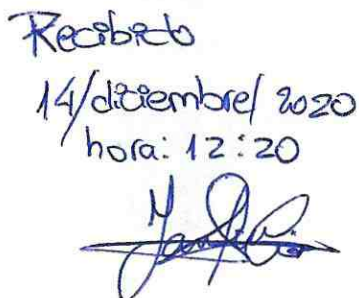 Recibido
14/diciembre/ 2020
hora: 12:20